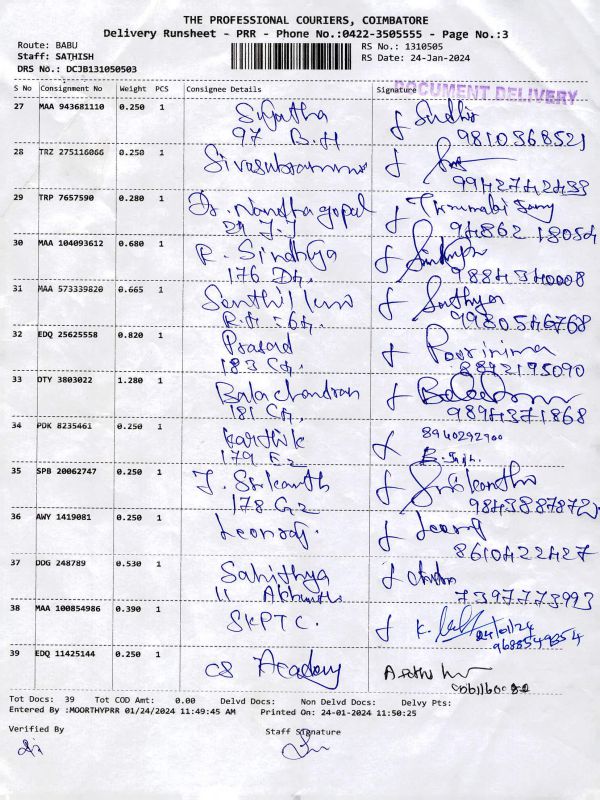 THE PROFESSIONAL COURIERS, COIMBATORE
Delivery Runsheet - PRR - Phone No.:0422-3505555 - Page No.:3
Route: BABU
Staff: SATHISH
DRS No.: DCJB131050503
RS No.: 1310505
RS Date: 24-Jan-2024
DOCUMENT DELIVERY
S No Consignment No Weight PCS Consignee Details Signature
27 MAA 943681110 0.250 1 Sujatha Sudhir
97 B.H 9810368521
28 TRZ 275116066 0.250 1 Sivasubramani
9942742433
29 TRP 7657590 0.280 1 Dr. Nandhagopal Thirumalai Samy
29 J.J 94862 18054
30 MAA 104093612 0.680 1 R. Sindhya
176 D4. 9884340008
31 MAA 573339820 0.665 1 Senthil Sathya
9980546768
32 EDQ 25625558 0.820 1 Prasad Poornima
183 C4. 8892195090
33 DTY 3803022 1.280 1 Bala Chandran
181 C4. 9894371868
34 PDK 8235461 0.250 1 Karthik 8940292900
179 E2
35 SPB 20062747 0.250 1 J. Srikanth Srikantha
178 G2
36 AWY 1419081 0.250 1
8610422427
37 DDG 248789 0.530 1 Sahithya
11 7397773993
38 MAA 100854986 0.390 1 SKPTC. K.
24/01/24
9688549354
39 EDQ 11425144 0.250 1 CS Academy
Tot Docs: 39 Tot COD Amt: 0.00 Delvd Docs: Non Delvd Docs: Delvy Pts:
Entered By :MOORTHYPRR 01/24/2024 11:49:45 AM Printed On: 24-01-2024 11:50:25
Verified By Staff Signature